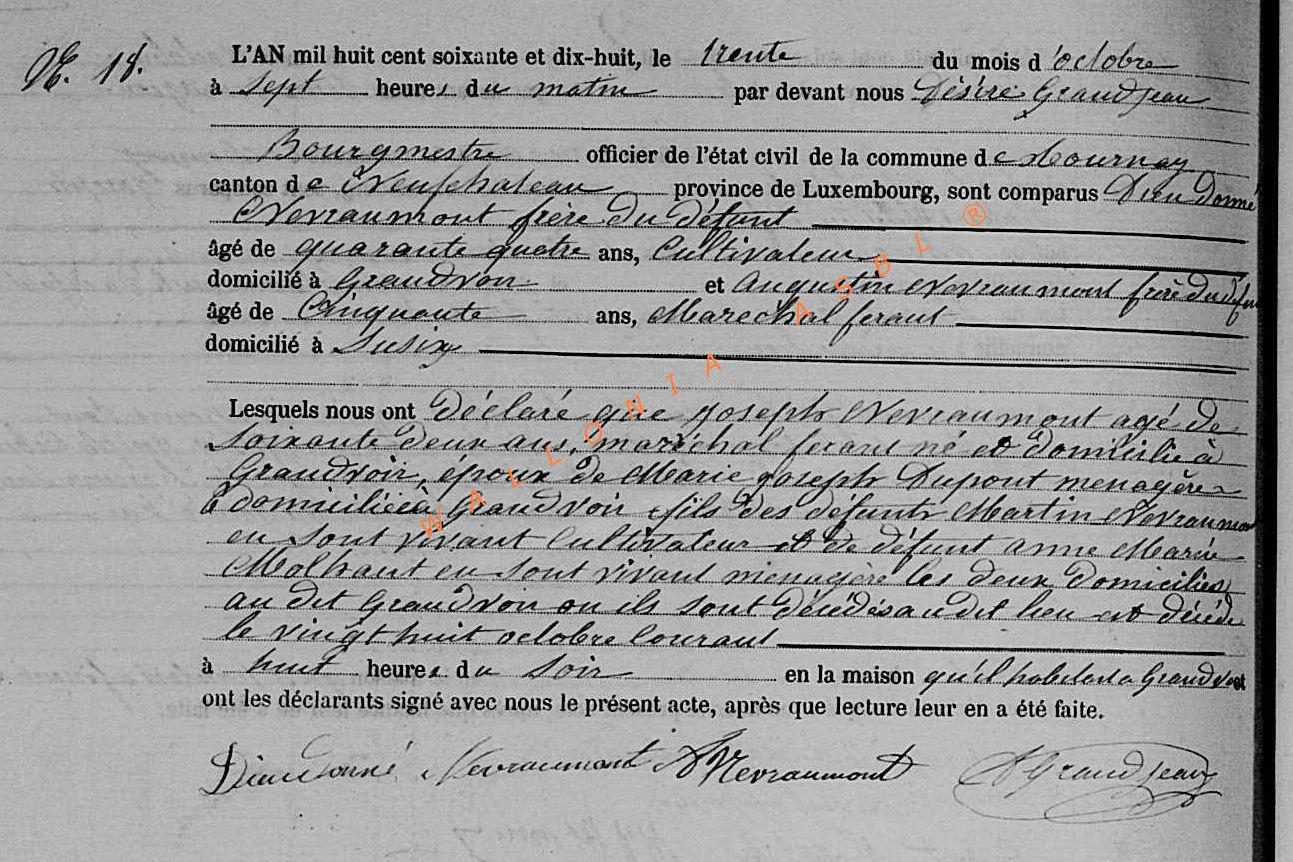 N. 18.
L'AN mil huit cent soixante et dix-huit, le trente du mois d'octobre
à sept heures du matin par devant nous Désiré Grandjean
Bourgmestre officier de l'état civil de la commune de Tournay
canton de Neufchateau province de Luxembourg, sont comparus Dieudonné
Nevraumont frère du défunt
âgé de quarante quatre ans, Cultivateur
domicilié à Grandvoir et Augustin Nevraumont frère du défun
âgé de Cinquante ans, Maréchal ferant
domicilié à
Lesquels nous ont déclaré que Joseph Nevraumont agé de
soixante deux ans, maréchal ferant né et domicilié à
Grandvoir, époux de Marie Joseph Dupont menagère
domiciliée à Grandvoir fils des défunts Martin Nevraumont
en sont vivant Cultivateur et de défunt anne Marie
Molhant en sont vivant menagère les deux domiciliés
au dit Grandvoir ou ils sont décédés au dit lieu est décédé
le vingt huit octobre Courant
à huit heures du soir en la maison qu'il habitait a Grandvoir
ont les déclarants signé avec nous le présent acte, après que lecture leur en a été faite.
Dieudonné Nevraumont A Nevraumont D Grandjean
WALLONIA ASBL ®